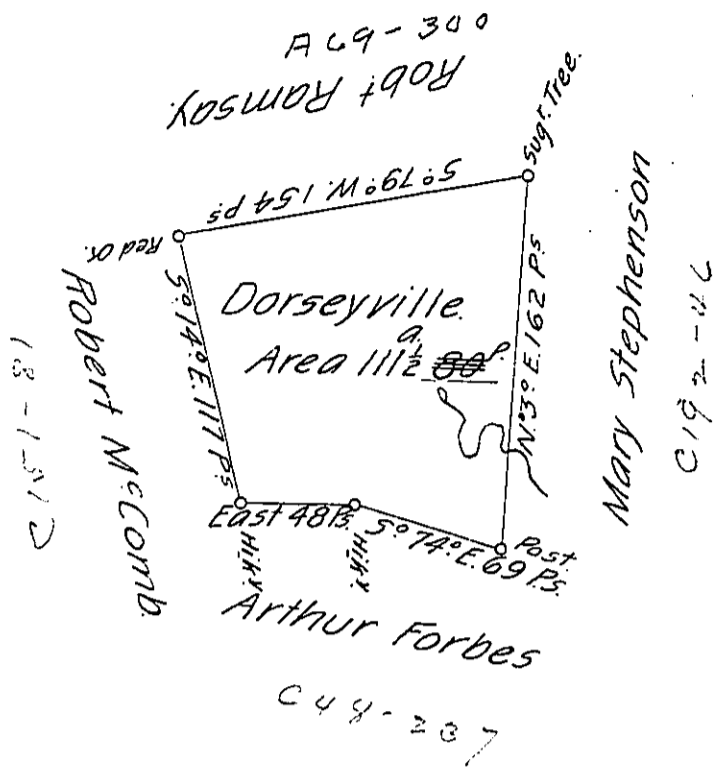 A 69-300
Robt Ramsay.
Sugr. Tree.
S° 79° W. 154 ps
Red O.
Dorseyville.
Area 111½ a. 80 P
N° 3° E. 162 P.s
Mary Stephenson
C192-46
S° 14° E. 117 P.s
Robert McComb.
East 48 Ps.
S° 74° E. 69 P.s.
Post.
Hiky.
Hiky.
Arthur Forbes
C48-287